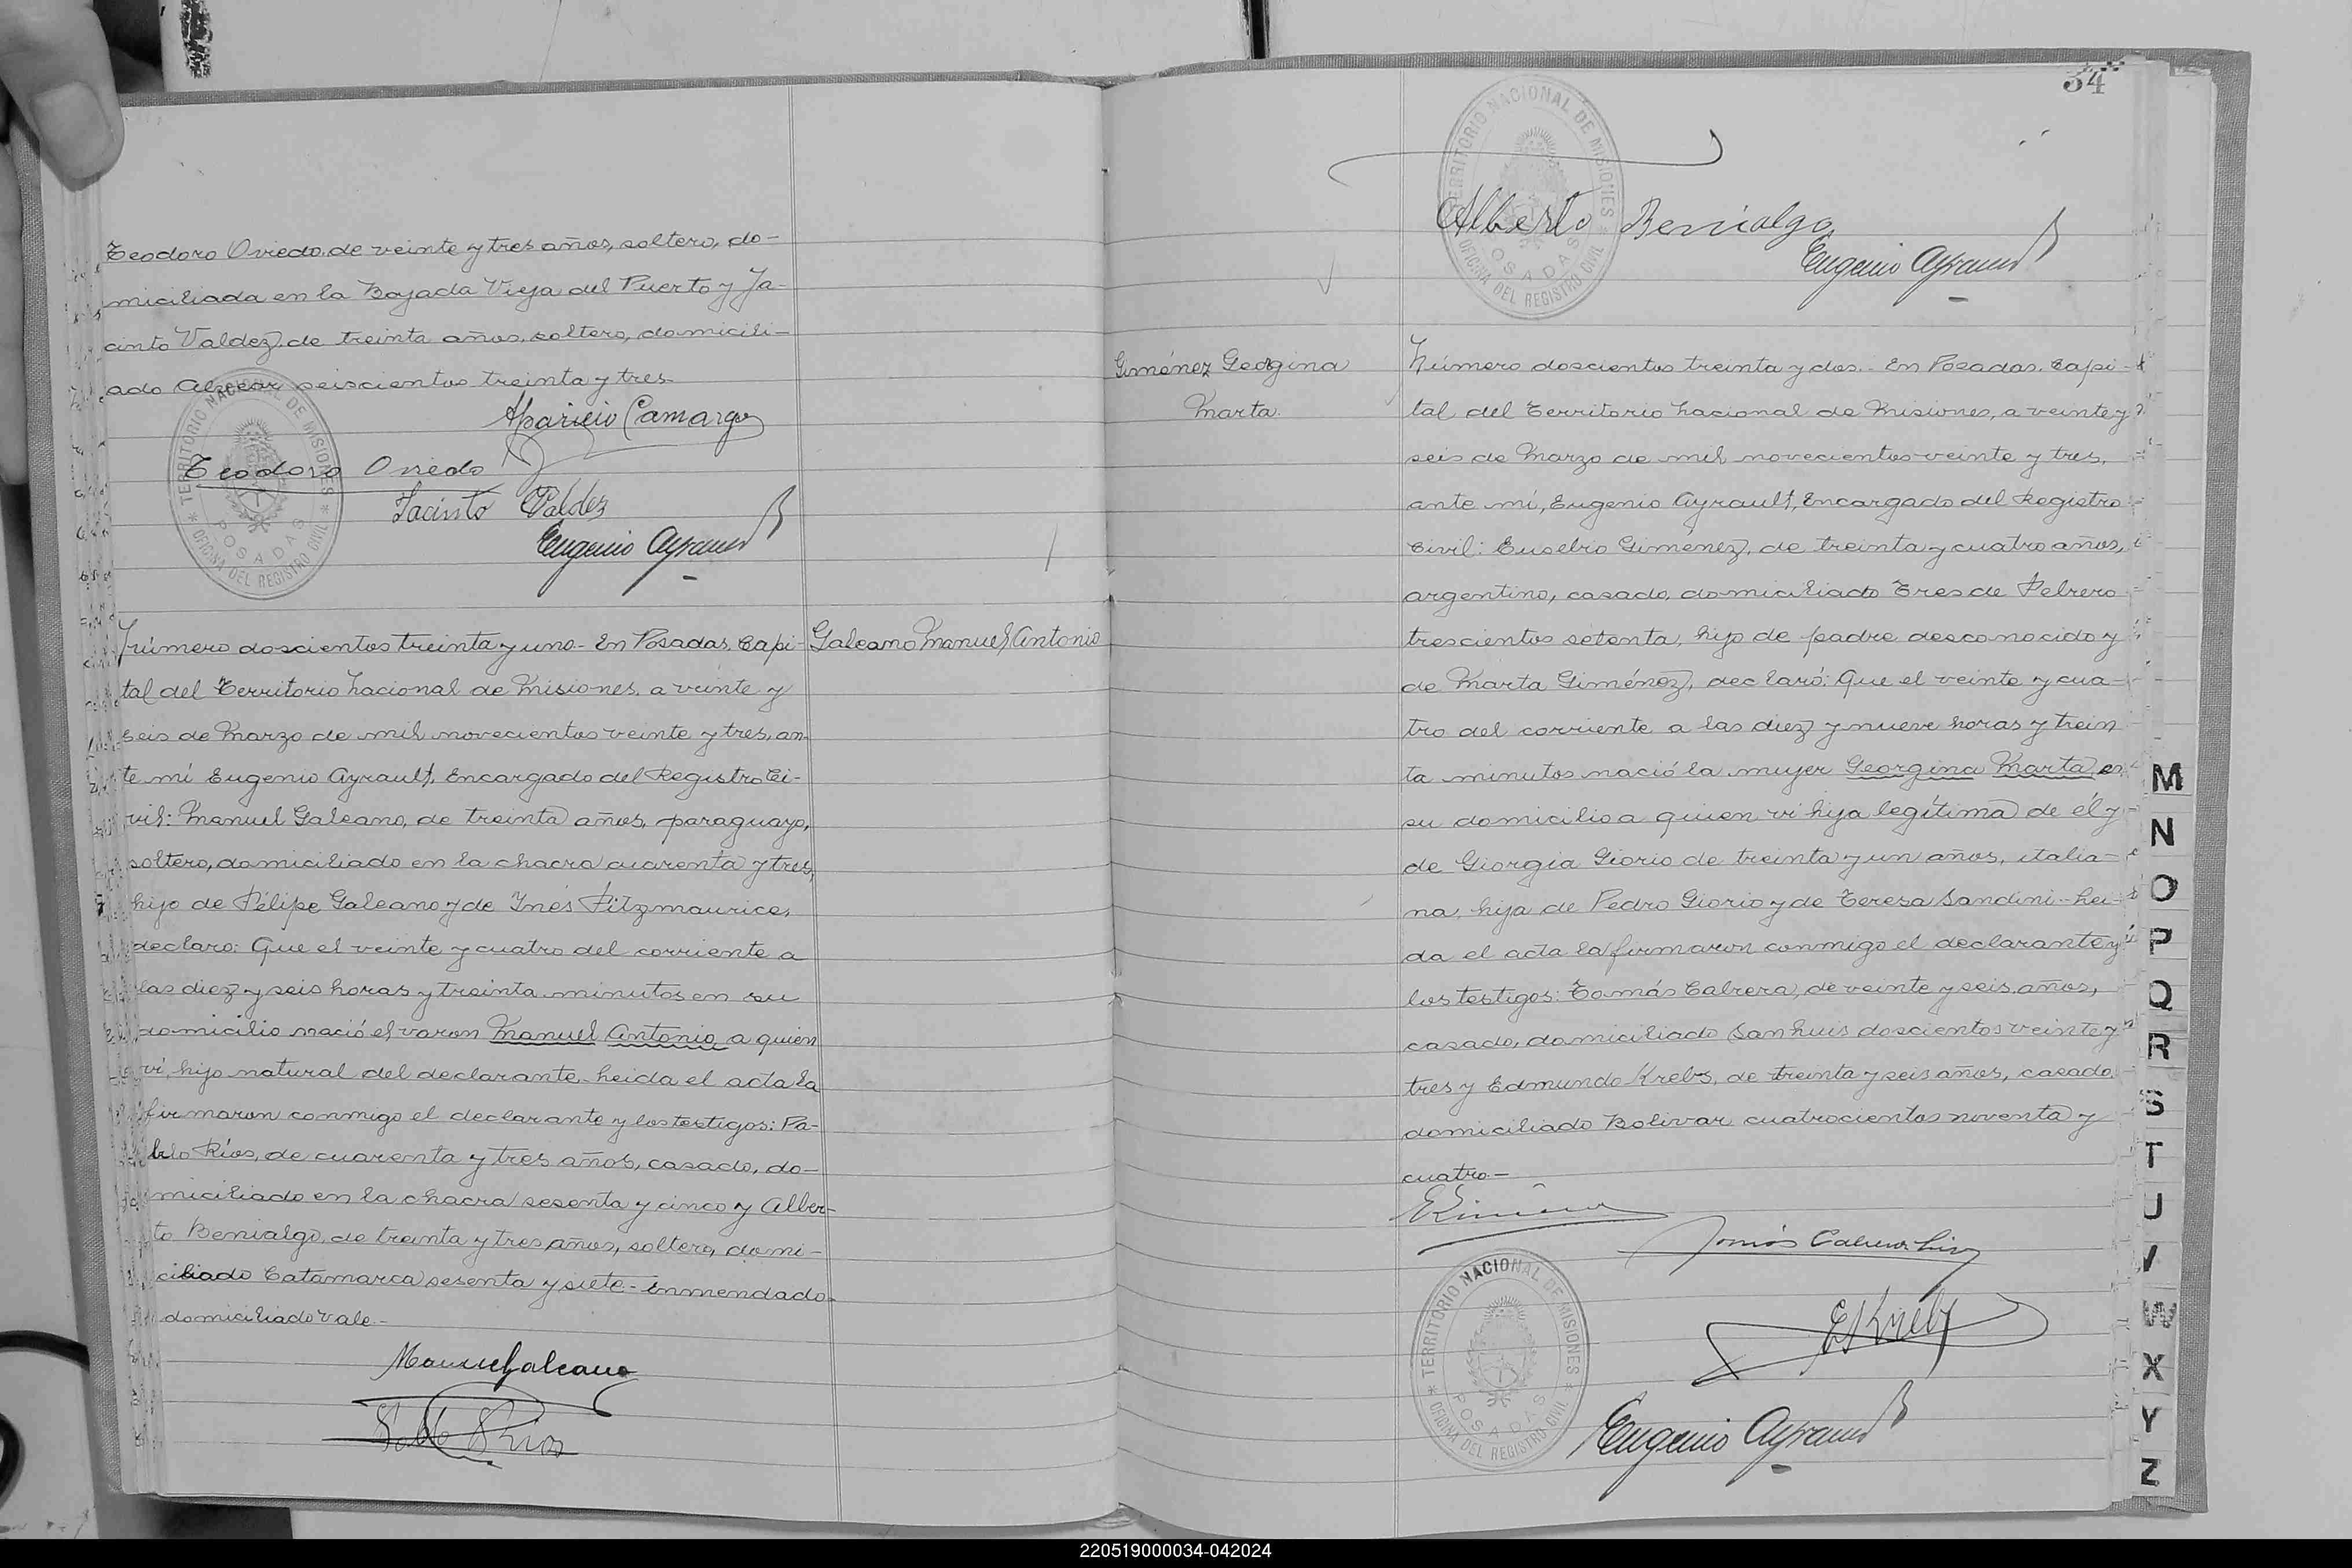 Teodoro Oviedo, de veinte y tres años, soltero, do-
miciliada en la Bajada Vieja del Puerto y Ja-
cinto Valdez, de treinta años, soltero, domicili-
ado Alvear seiscientos treinta y tres
Aparicio Camargo
Teodoro Oviedo
Jacinto Valdez
Eugenio Ayrault
TERRITORIO NACIONAL DE MISIONES
POSADAS
OFICINA DEL REGISTRO CIVIL
Galeano Manuel Antonio
Número doscientos treinta y uno.- En Posadas, Capi-
tal del Territorio Nacional de Misiones, a veinte y
seis de Marzo de mil novecientos veinte y tres, an-
te mí Eugenio Ayrault, Encargado del Registro Ci-
vil: Manuel Galeano, de treinta años, paraguayo,
soltero, domiciliado en la chacra cuarenta y tres,
hijo de Félipe Galeano y de Inés Fitzmaurice,
declaro: Que el veinte y cuatro del corriente a
las diez y seis horas y treinta minutos en su
domicilio nació el varon Manuel Antonio a quien
ví, hijo natural del declarante.- Leida el acta la
firmaron conmigo el declarante y los testigos: Pa-
blo Ríos, de cuarenta y tres años, casado, do-
miciliado en la chacra sesenta y cinco y Alber-
to Benialgo, de treinta y tres años, soltero, domi-
ciliado Catamarca sesenta y siete.- Enmendado-
domiciliado vale.-
Manuel Galeano
Pablo Rios
34
TERRITORIO NACIONAL DE MISIONES
POSADAS
OFICINA DEL REGISTRO CIVIL
Alberto Benialgo
Eugenio Ayrault
Giménez Georgina
Marta.
Número doscientos treinta y dos.- En Posadas, Capi-
tal del Territorio Nacional de Misiones, a veinte y
seis de Marzo de mil novecientos veinte y tres,
ante mí, Eugenio Ayrault, Encargado del Registro
Civil: Eusebio Giménez, de treinta y cuatro años,
argentino, casado, domiciliado Tres de Febrero
trescientos setenta, hijo de padre desconocido y
de Marta Giménez, declaró: Que el veinte y cua-
tro del corriente a las diez y nueve horas y trein
ta minutos nació la mujer Georgina Marta en
su domicilio a quien vi hija legítima de él y
de Giorgia Giorio de treinta y un años, italia-
na, hija de Pedro Giorio y de Teresa Sandini.- Lei-
da el acta la firmaron conmigo el declarante y
los testigos: Tomás Cabrera, de veinte y seis años,
casado, domiciliado San Luis doscientos veinte y
tres y Edmundo Krebs, de treinta y seis años, casado,
domiciliado Bolivar cuatrocientos noventa y
cuatro.-
Tomás Cabrera
E Krebs
Eugenio Ayrault
TERRITORIO NACIONAL DE MISIONES
POSADAS
OFICINA DEL REGISTRO CIVIL
M
N
O
P
Q
R
S
T
U
V
W
X
Y
Z
220519000034-042024